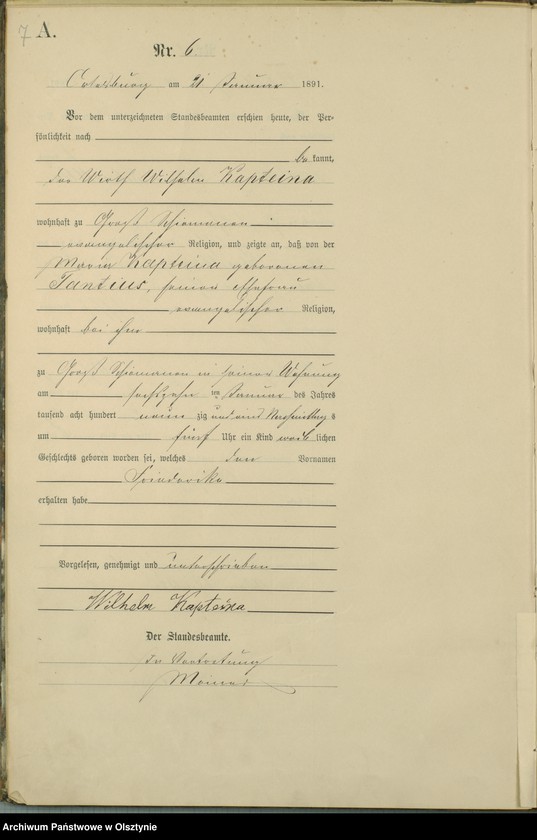 7 A.
Nr. 6.
Ortelsburg am 21 Januar 1891.
Vor dem unterzeichneten Standesbeamten erschien heute, der Per-
sönlichkeit nach
be kannt,
der Wirth Wilhelm Kapteina
wohnhaft zu Groß Schiemanen
evangelischer Religion, und zeigte an, daß von der
Marie Kapteina geborenen
Tantius, seiner Ehefrau
evangelischer Religion,
wohnhaft bei ihm
zu Groß Schiemanen in seiner Wohnung
am sechszehn ten Januar des Jahres
tausend acht hundert neun zig und eins Nachmittag s
um fünf Uhr ein Kind weib lichen
Geschlechts geboren worden sei, welches den Vornamen
Friederike
erhalten habe
Vorgelesen, genehmigt und unterschrieben
Wilhelm Kapteina
Der Standesbeamte.
In Vertretung
Archiwum Państwowe w Olsztynie